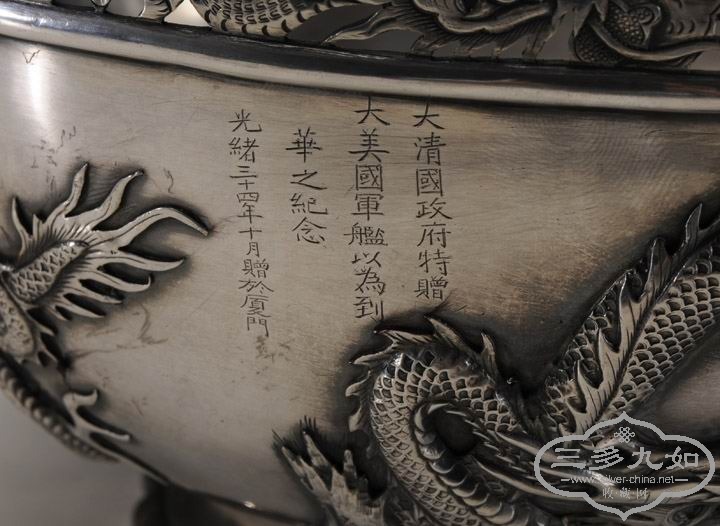 大清國政府特贈
大美國軍艦以為到
華之紀念
光緒三十四年十月贈於厦門
三多九如
www.silver-china.net
收藏网